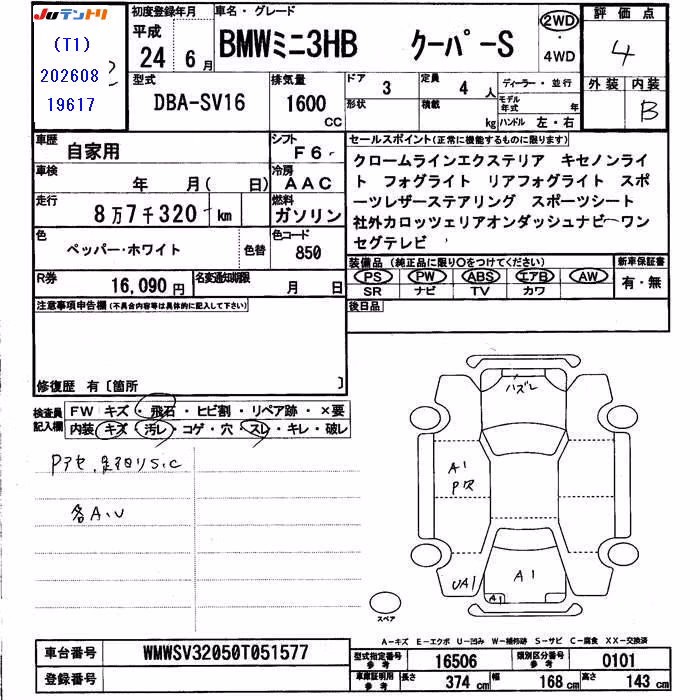 JUテントリ
(T1)
202608
19617
初度登録年月
平成
24 6月
車名・グレード
BMWミニ3HB クーパーS
2WD
・
4WD
評価点
4
型式
DBA-SV16
排気量
1600
CC
ドア
3
形状
定員
4人
積載
kg
ディーラー・並行
モデル年式 年
ハンドル 左・右
外装 内装
B
車歴
自家用
シフト
F6
車検
年 月( 日)
冷房
AAC
走行
8万7千320 km
燃料
ガソリン
色
ペッパー・ホワイト
色替
色コード
850
R券
16,090円
名変通知期限
月 日
セールスポイント(正常に機能するものに限ります)
クロームラインエクステリア キセノンライ
ト フォグライト リアフォグライト スポ
ーツレザーステアリング スポーツシート
社外カロッツェリアオンダッシュナビーワン
セグテレビ
装備品(純正品に限り○をつけてください)
PS PW ABS エアB AW
SR ナビ TV カワ
新車保証書
有・無
後日品
注意事項申告欄(不具合内容等は具体的に記入して下さい)
修復歴 有〔箇所 〕
検査員記入欄
FW キズ・飛石・ヒビ割・リペア跡・×要
内装・キズ・汚レ・コゲ・穴・スレ・キレ・破レ
Pアセ、
S.C
各A、U
ハズレ
A1
P穴
UA1
A1
A1
スペア
A-キズ E-エクボ U-凹み W-補修跡 S-サビ C-腐食 XX-交換済
車台番号
WMWSV32050T051577
登録番号
型式指定番号
参考
16506
類別区分番号
参考
0101
車庫証明用
参考
長さ
374cm
幅
168cm
高さ
143cm